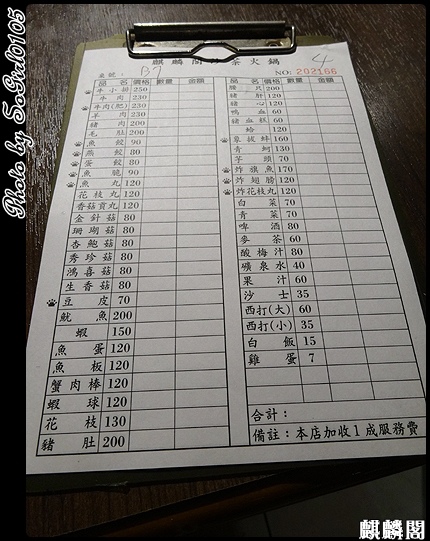 Photo by SoGirl0105
麒麟閣沙茶火鍋
桌號： B7 NO: 202166 4
品名 價格 數量 金額
牛小排 250
牛肉 230
牛肉(肥) 230
羊肉 230
豬肉 200
毛肚 200
魚餃 90
燕餃 80
蛋餃 80
魚脆 90
魚丸 120
花枝丸 120
香菇貢丸 120
金針菇 80
珊瑚菇 80
杏鮑菇 80
秀珍菇 80
鴻喜菇 80
生香菇 80
豆皮 70
魷魚 200
蝦 150
魚蛋 120
魚板 120
蟹肉棒 120
蝦球 120
花枝 130
豬肚 200
品名 價格 數量 金額
腰只 200
豬肝 120
豬心 120
鴨血 60
豬血糕 60
蛤 120
象拔蚌 160
青蚵 130
芋頭 70
炸旗魚 170
炸翅膀 120
炸花枝丸 120
白菜 70
青菜 70
啤酒 80
麥茶 60
酸梅汁 80
礦泉水 40
果汁 60
沙士 35
西打(大) 60
西打(小) 35
白飯 15
雞蛋 7
合計：
備註：本店加收1成服務費
麒麟閣